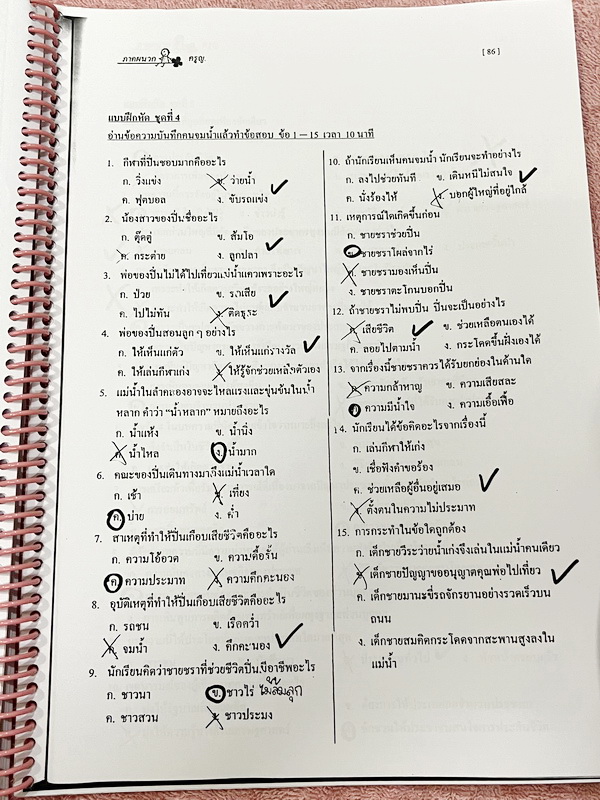 ภาคผนวก ครูญ.
[ 86 ]
แบบฝึกหัด ชุดที่ 4
อ่านข้อความบันทึกคนจมน้ำแล้วทำข้อสอบ ข้อ 1 – 15 เวลา 10 นาที
1. กีฬาที่ปิ่นชอบมากคืออะไร
ก. วิ่งแข่ง ข. ว่ายน้ำ
ค. ฟุตบอล ง. ขับรถแข่ง
2. น้องสาวของปิ่นชื่ออะไร
ก. ตุ๊ดตู่ ข. ส้มโอ
ค. กระต่าย ง. ลูกปลา
3. พ่อของปิ่นไม่ได้ไปเที่ยวแม่น้ำแควเพราะอะไร
ก. ป่วย ข. รถเสีย
ค. ไปไม่ทัน ง. ติดธุระ
4. พ่อของปิ่นสอนลูก ๆ อย่างไร
ก. ให้เห็นแก่ตัว ข. ให้เห็นแก่รางวัล
ค. ให้เล่นกีฬาเก่ง ง. ให้รู้จักช่วยเหลือตัวเอง
5. แม่น้ำในลำคลองอาจจะไหลแรงและขุ่นข้นในน้ำ
หลาก คำว่า "น้ำหลาก" หมายถึงอะไร
ก. น้ำแห้ง ข. น้ำนิ่ง
ค. น้ำไหล ง. น้ำมาก
6. คณะของปิ่นเดินทางมาถึงแม่น้ำเวลาใด
ก. เช้า ข. เที่ยง
ค. บ่าย ง. ค่ำ
7. สาเหตุที่ทำให้ปิ่นเกือบเสียชีวิตคืออะไร
ก. ความโอ้อวด ข. ความดื้อรั้น
ค. ความประมาท ง. ความคึกคะนอง
8. อุบัติเหตุที่ทำให้ปิ่นเกือบเสียชีวิตคืออะไร
ก. รถชน ข. เรือคว่ำ
ค. จมน้ำ ง. คึกคะนอง
9. นักเรียนคิดว่าชายชราที่ช่วยชีวิตปิ่นมีอาชีพอะไร
ก. ชาวนา ข. ชาวไร่
ค. ชาวสวน ง. ชาวประมง
10. ถ้านักเรียนเห็นคนจมน้ำ นักเรียนจะทำอย่างไร
ก. ลงไปช่วยทันที ข. เดินหนีไม่สนใจ
ค. นั่งร้องไห้ ง. บอกผู้ใหญ่ที่อยู่ใกล้
11. เหตุการณ์ใดเกิดขึ้นก่อน
ก. ชายชราช่วยปิ่น
ข. ชายชราโผล่จากไร่
ค. ชายชรามองเห็นปิ่น
ง. ชายชราตะโกนบอกปิ่น
12. ถ้าชายชราไม่พบปิ่น ปิ่นจะเป็นอย่างไร
ก. เสียชีวิต ข. ช่วยเหลือตนเองได้
ค. ลอยไปตามน้ำ ง. กระโดดขึ้นฝั่งเองได้
13. จากเรื่องนี้ชายชราควรได้รับยกย่องในด้านใด
ก. ความกล้าหาญ ข. ความเสียสละ
ค. ความมีน้ำใจ ง. ความเอื้อเฟื้อ
14. นักเรียนได้ข้อคิดอะไรจากเรื่องนี้
ก. เล่นกีฬาให้เก่ง
ข. เชื่อฟังคำขอร้อง
ค. ช่วยเหลือผู้อื่นอยู่เสมอ
ง. ตั้งตนในความไม่ประมาท
15. การกระทำในข้อใดถูกต้อง
ก. เด็กชายวีระว่ายน้ำเก่งจึงเล่นในแม่น้ำคนเดียว
ข. เด็กชายปัญญาขออนุญาตคุณพ่อไปเที่ยว
ค. เด็กชายมานะขี่รถจักรยานอย่างรวดเร็วบน
ถนน
ง. เด็กชายสมคิดกระโดดจากสะพานสูงลงใน
แม่น้ำ